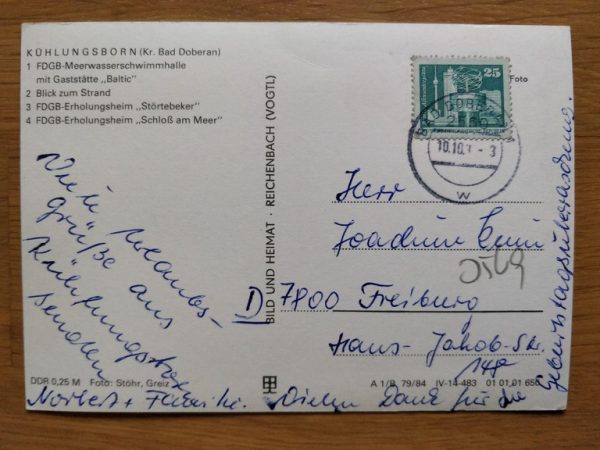 KÜHLUNGSBORN (Kr. Bad Doberan)
1 FDGB-Meerwasserschwimmhalle
mit Gaststätte „Baltic"
2 Blick zum Strand
3 FDGB-Erholungsheim „Störtebeker"
4 FDGB-Erholungsheim „Schloß am Meer"
Viele Urlaubs-
grüße aus
Kühlungsborn
senden
Norbert + Familie.
Vielen Dank für die
Geburtstagsüberraschung.
BILD UND HEIMAT · REICHENBACH (VOGTL)
25
Foto
BAD DOBERAN
10.10.
3
W
Herr
Joachim
D 7800 Freiburg
Hans-Jakob-Str.
148
DDR 0,25 M Foto: Stöhr, Greiz
A 1/B 79/84 IV-14-483 01 01 01 650